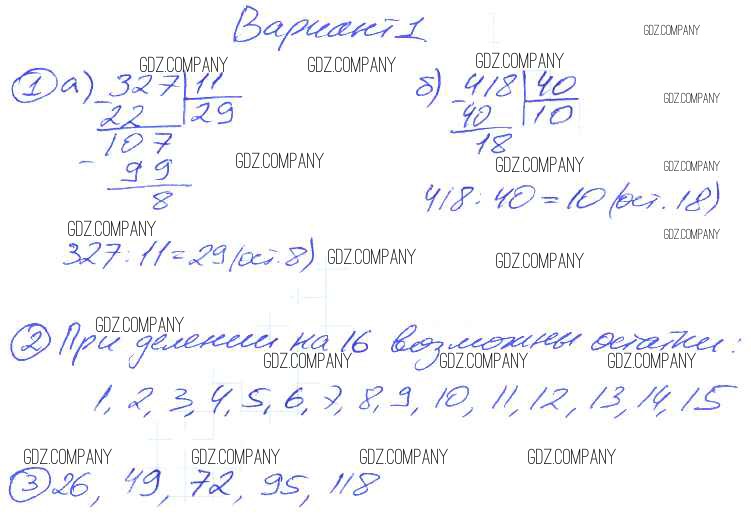 Вариант 1
GDZ.COMPANY
GDZ.COMPANY GDZ.COMPANY GDZ.COMPANY
1 а) 327 11 б) 418 40
GDZ.COMPANY
- 22 29 - 40 10
107 18
- 99 GDZ.COMPANY GDZ.COMPANY GDZ.COMPANY
8 418 : 40 = 10 (ост. 18)
GDZ.COMPANY GDZ.COMPANY
327 : 11 = 29 (ост. 8) GDZ.COMPANY GDZ.COMPANY
GDZ.COMPANY
2 При делении на 16 возможны остатки:
GDZ.COMPANY GDZ.COMPANY GDZ.COMPANY
1, 2, 3, 4, 5, 6, 7, 8, 9, 10, 11, 12, 13, 14, 15
GDZ.COMPANY GDZ.COMPANY GDZ.COMPANY GDZ.COMPANY
3 26, 49, 72, 95, 118